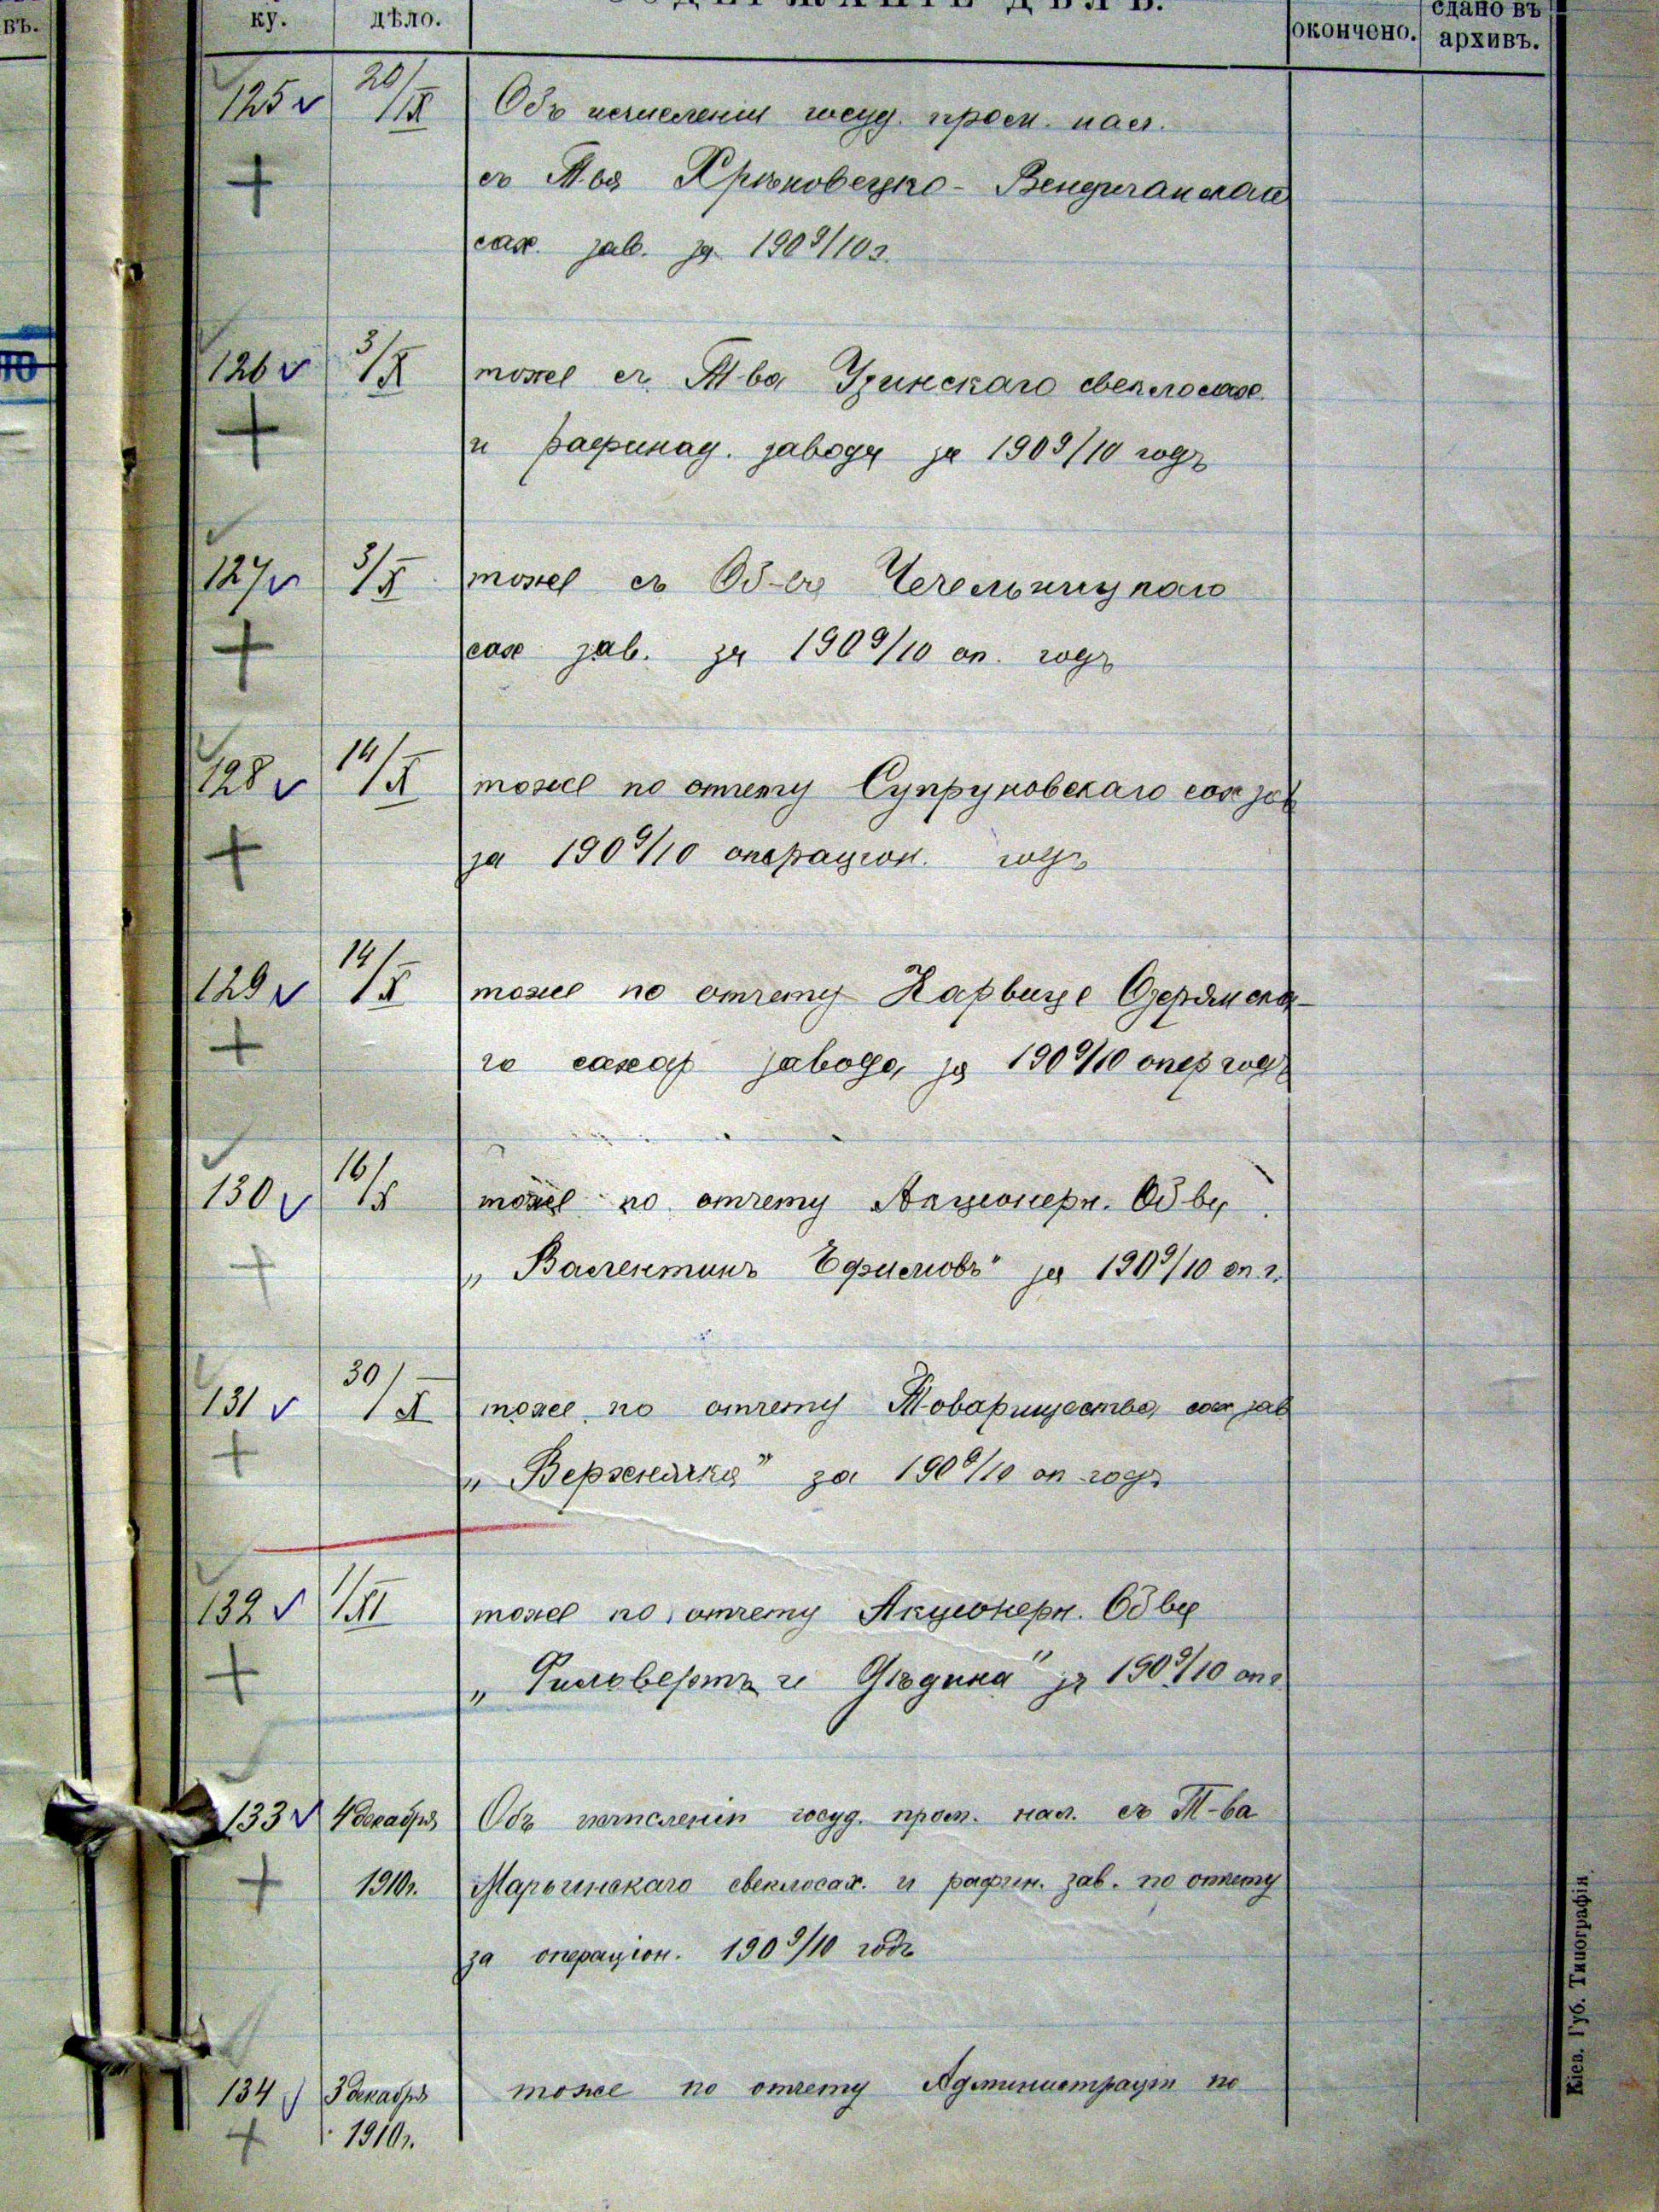 въ.
ку.
дѣло.
СОДЕРЖАНІЕ ДѢЛЪ.
окончено.
сдано въ
архивъ.
125 20/IX Объ исчисленіи госуд. пром. нал.
съ Т-ва Крыковецко-Вендичанскаго
сах. зав. за 1909/10 г.
126 3/X тоже съ Т-ва Узинскаго свеклосах.
и рафинад. завода за 1909/10 годъ
127 3/X тоже съ Об-ва Чечельницкаго
сах зав. за 1909/10 оп. годъ
128 14/X тоже по отчету Супруновскаго сах зав
за 1909/10 операціон. годъ
129 14/X тоже по отчету Карвице Озерянска-
го сахар завода, за 1909/10 опер годъ
130 16/X тоже по отчету Акціонерн. Об ва
„Валентинъ Ефимовъ" за 1909/10 оп. г.
131 30/X тоже по отчету Товарищества, сах зав
„Верхнячка" за 1909/10 оп годъ
132 1/XI тоже по отчету Акціонерн. Об ва
„Фильвертъ и Дѣдина" за 1909/10 оп г
133 4 декабря Объ исчисленіи госуд. пром. нал. съ Т-ва
1910 г. Марьинскаго свеклосах. и рафин. зав. по отчету
за операціон. 1909/10 годъ
134 3 декабря тоже по отчету Администраціи по
1910 г.
Кіев. Губ. Типографія